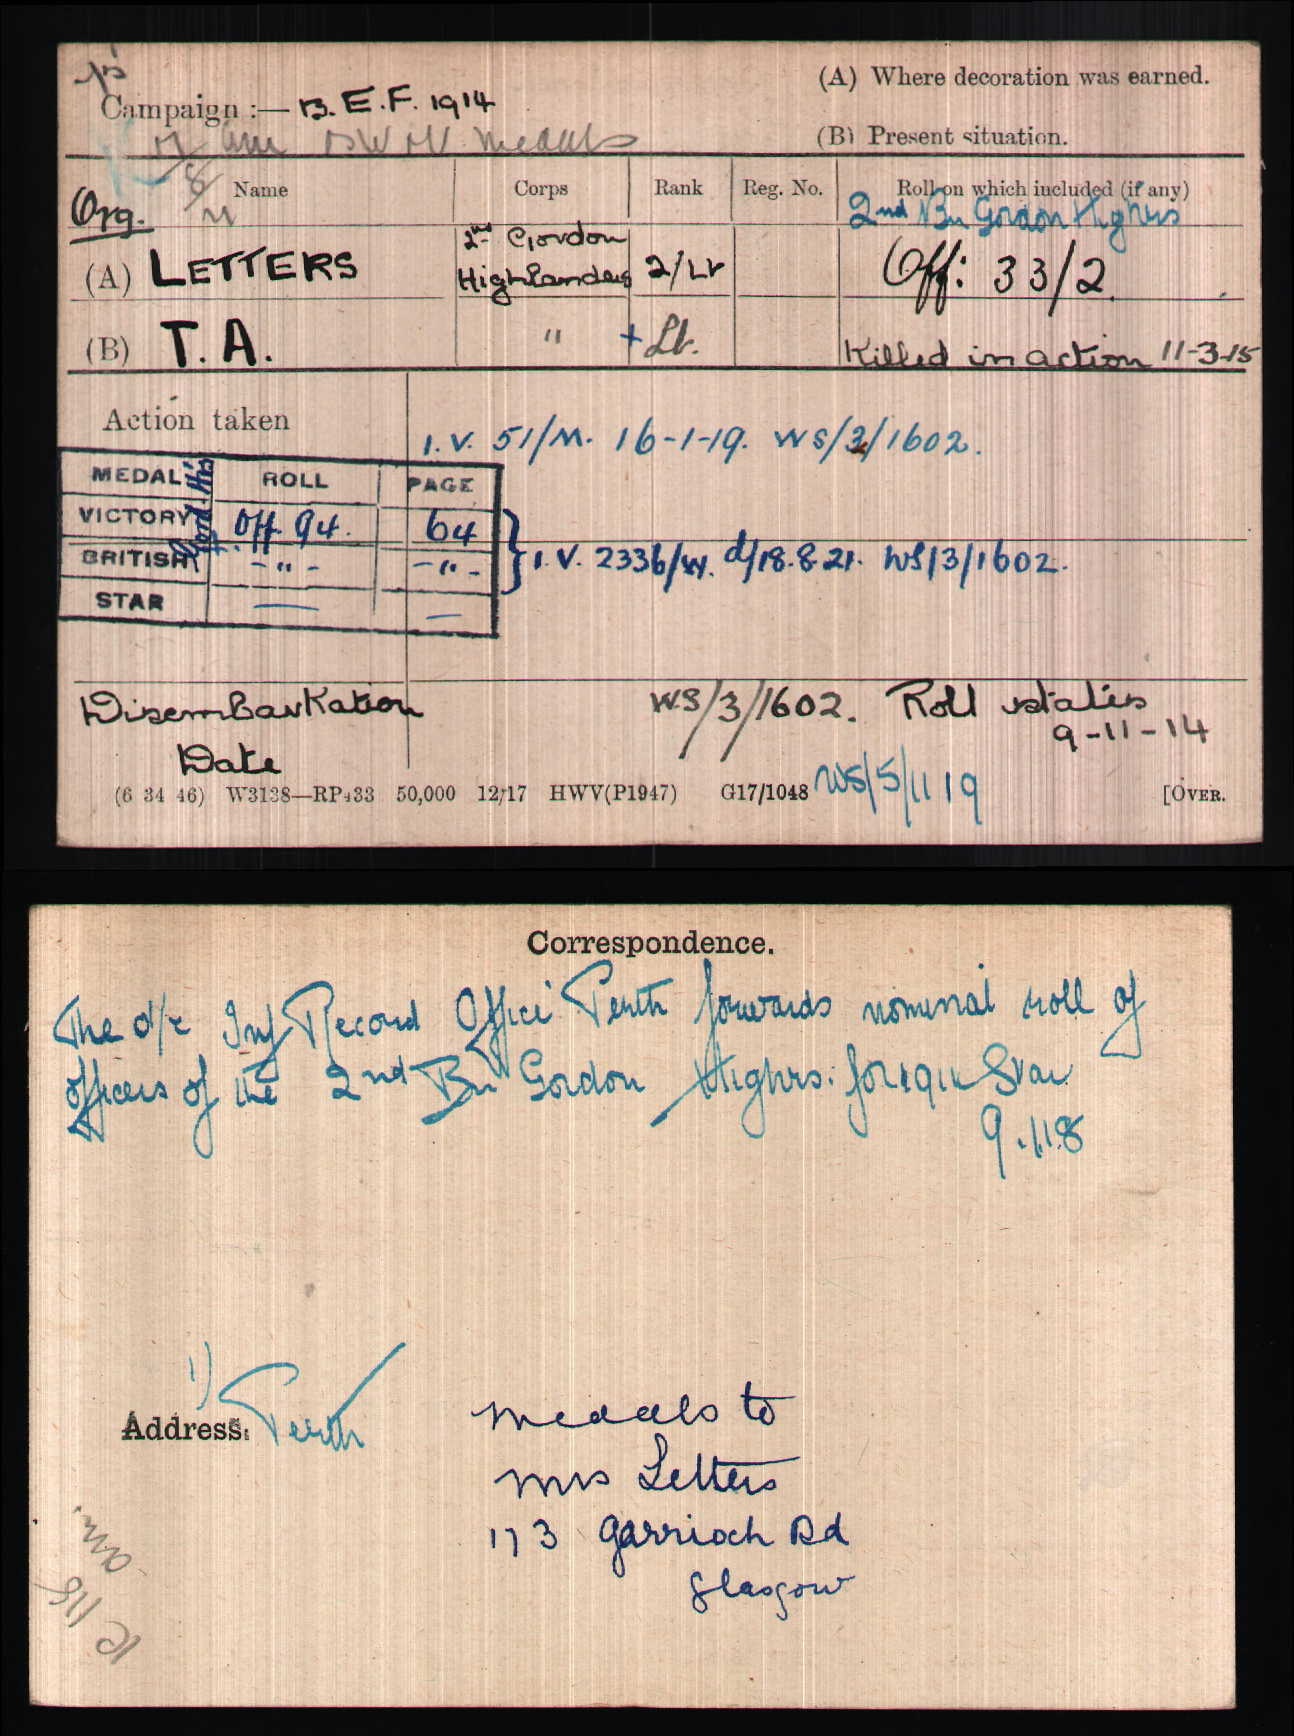 (A) Where decoration was earned.
Campaign :— B.E.F. 1914
(B) Present situation.
medals
Name Corps Rank Reg. No. Roll on which included (if any)
Org.
2nd Bn Gordon Highrs
(A) LETTERS 2nd Gordon Highlanders 2/Lt Off: 33/2
(B) T. A. " + Lt. Killed in action 11-3-15
Action taken
I.V. 51/M. 16-1-19. WS/3/1602.
MEDAL ROLL PAGE
VICTORY Off. 94. 64
BRITISH -"- -"- } I.V. 2336/W. d/18.8.21. WS/3/1602.
STAR — —
Gord. Hrs
Disembarkation WS/3/1602. Roll states
9-11-14
Date
(6 34 46) W3138—RP433 50,000 12/17 HWV(P1947) G17/1048 WS/5/1119 [OVER.
Correspondence.
The O/c Inf Record Office Perth forwards nominal roll of
officers of the 2nd Bn Gordon Highrs. for 1914 Star
9.1.18
1) Perth
Address:
Medals to
Mrs Letters
173 Garrioch Rd
Glasgow